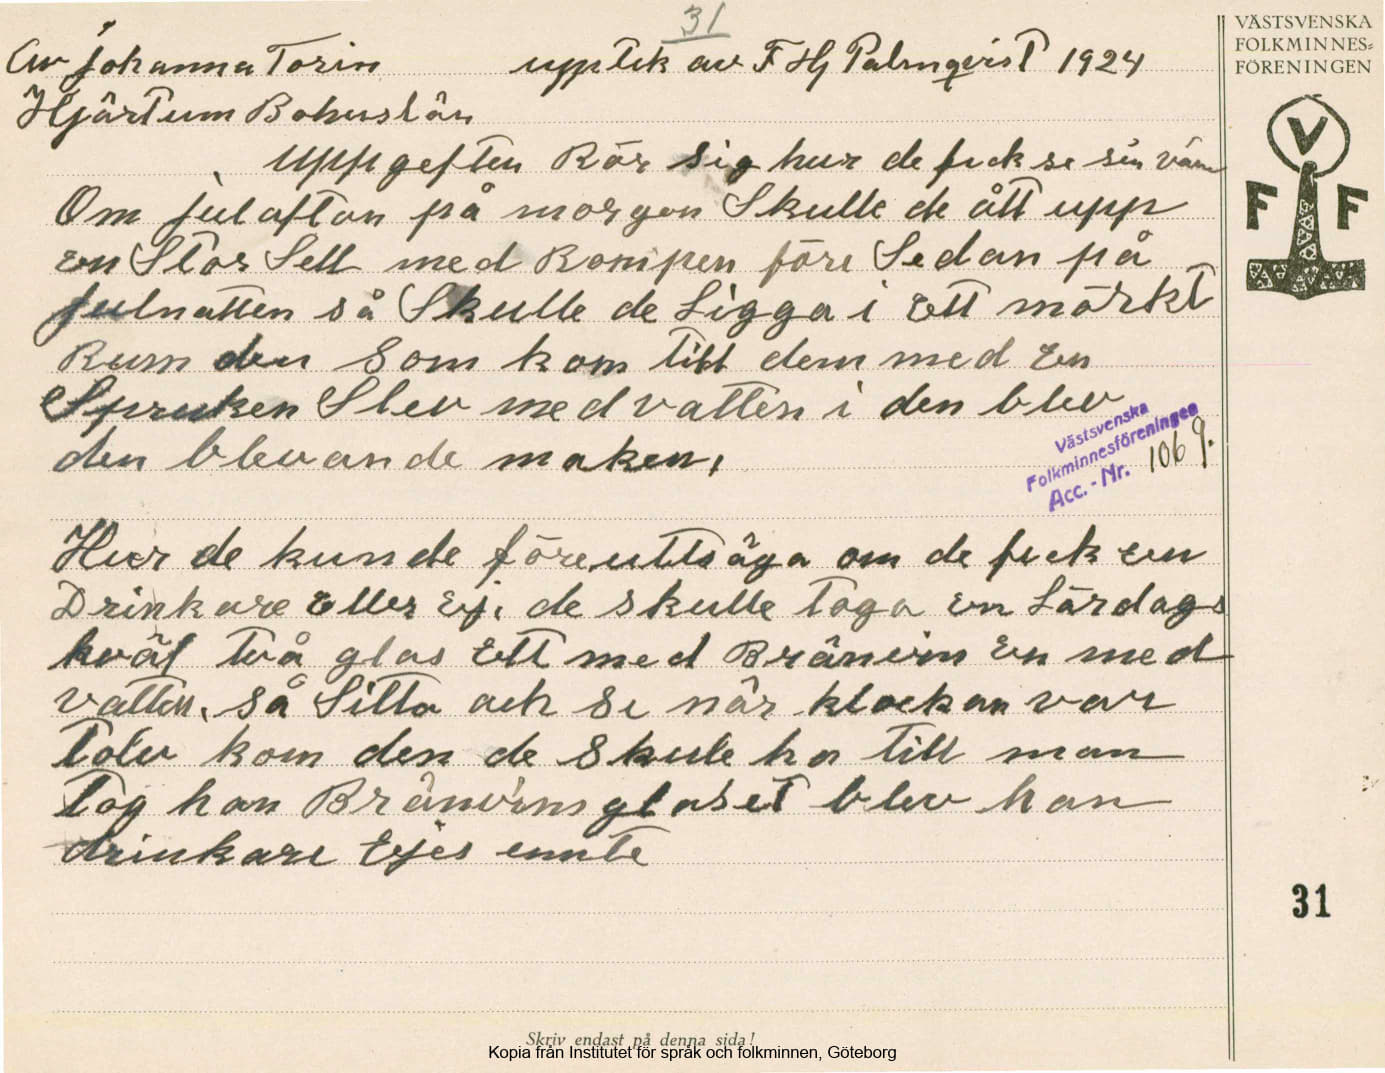 31
Av Johanna Torin upptek av F Hj Palmqvist 1924
Hjärtum Bohuslän
VÄSTSVENSKA
FOLKMINNES=
FÖRENINGEN
V
F F
uppgeften Rör sig hur de fick se sin vän
Om julaftan på morgon Skulle de ått upp
en Stor Sell med Rompen före Sedan på
julnatten så Skulle de Ligga i Ett mörkt
Rum den Som kom till dem med En
Spruken Slev med vatten i den blev
den blevande maken,
Västsvenska
Folkminnesföreningen
Acc.-Nr. 1069.
Hur de kunde föreuttsäga om de fick En
Drinkare Eller Ej. de skulle taga En Lärdags
kväl två glas Ett med Bränvin En med
vatten. så Sitta ock Se när klockan var
tolv kom den de Skule ha till man
Tog han Bränvins glaset blev han
drinkare Ejes ennte
31
Skriv endast på denna sida!
Kopia från Institutet för språk och folkminnen, Göteborg